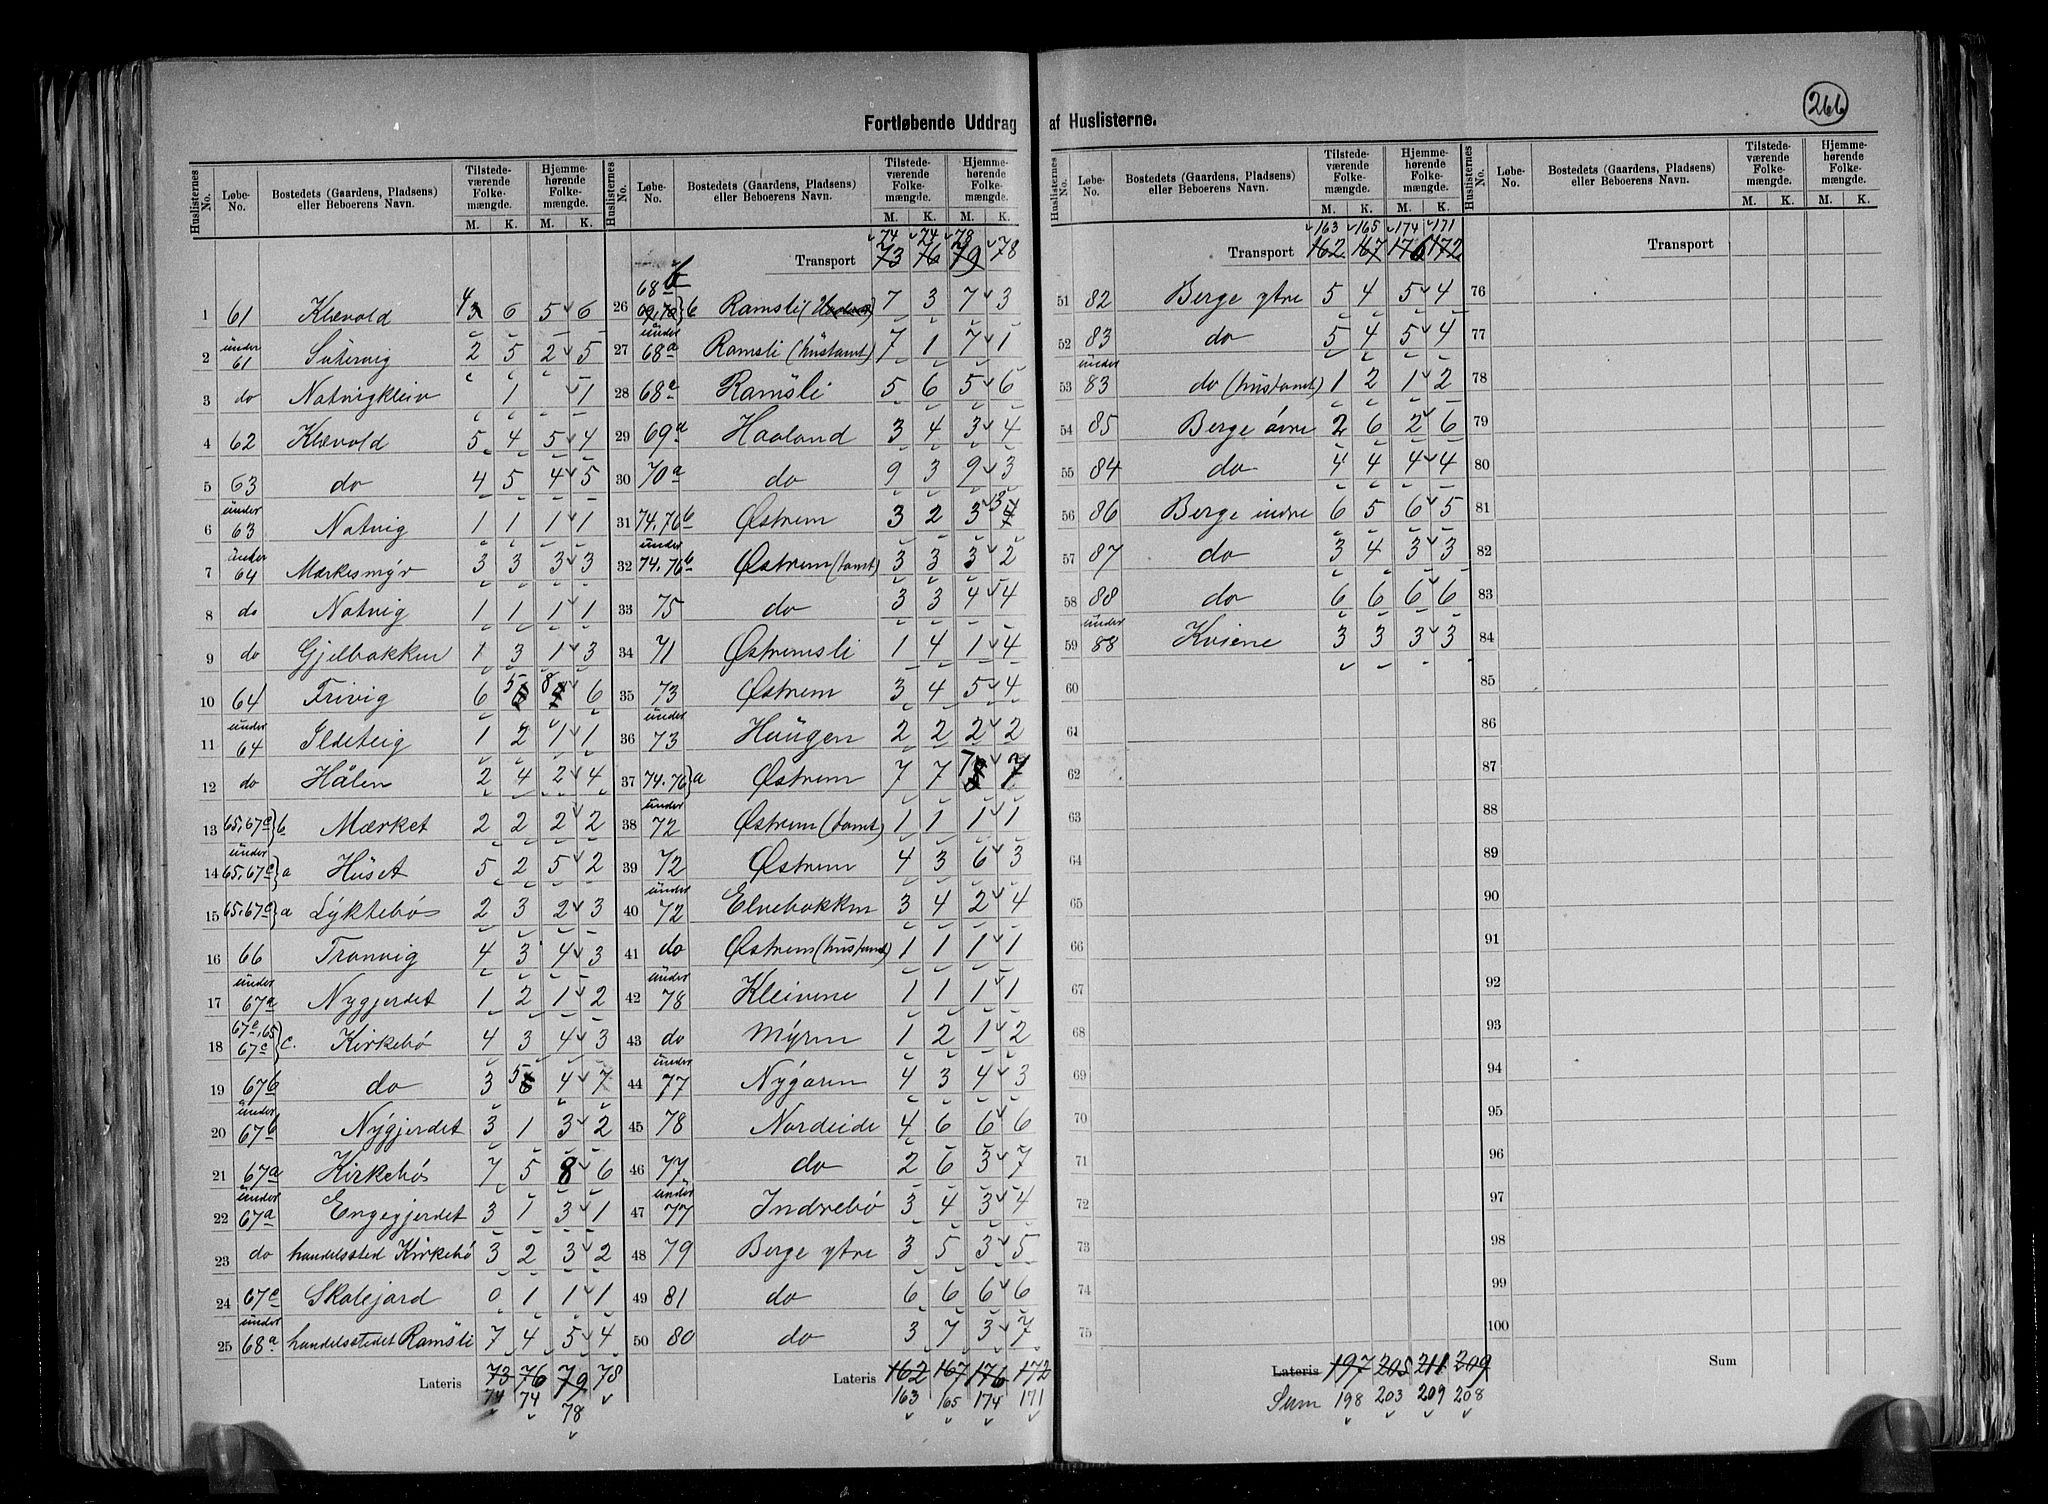 266
Fortløbende Uddrag af Huslisterne.
Huslisternes No. Løbe-No. Bostedets (Gaardens, Pladsens) eller Beboerens Navn. Tilstedeværende Folkemængde. Hjemmehørende Folkemængde.
M. K. M. K.
1 61 Klævold 4 6 5 6
2 under 61 Sætervig 2 5 2 5
3 do Natvigkleiv 1 1
4 62 Klævold 5 4 5 4
5 63 do 4 5 4 5
6 under 63 Natvig 1 1 1 1
7 under 64 Mærkesmyr 3 3 3 3
8 do Natvig 1 1 1 1
9 do Gjelbakken 1 3 1 3
10 64 Trivig 6 5 8 6
11 under 64 Ildeteig 1 2 1 1
12 do Hålen 2 4 2 4
13 65,67c}b Mærket 2 2 2 2
14 under 65,67c}a Huset 5 2 5 2
15 65,67c}a Lyktebø 2 3 2 3
16 66 Tranvig 4 3 4 3
17 under 67a Nygjerdet 1 2 1 2
18 67c,65 67c}c. Kirkebø 4 3 4 3
19 67b do 3 5 4 7
20 under 67b Nygjerdet 3 1 3 2
21 67a Kirkebø 7 5 8 6
22 under 67a Engegjerdet 3 1 3 1
23 do handelssted Kirkebø 3 2 3 2
24 67c Skolejord 0 1 1 1
25 under 68a handelsstedet Ramsli 7 4 5 4
Lateris 73 76 79 78
74 74 78
Huslisternes No. Løbe-No. Bostedets (Gaardens, Pladsens) eller Beboerens Navn. Tilstedeværende Folkemængde. Hjemmehørende Folkemængde.
M. K. M. K.
74 74 78
Transport 73 76 79 78
26 68b 69,70}b Ramsli 7 3 7 3
27 under 68a Ramsli (husløst) 7 1 7 1
28 68a Ramsli 5 6 5 6
29 69a Haaland 3 4 3 4
30 70a do 9 3 9 3
31 74,76b Østrem 3 2 3
32 under 74,76b Østrem (tomt) 3 3 3 2
33 75 do 3 3 4 4
34 71 Østremsli 1 4 1 4
35 73 Østrem 3 4 5 4
36 under 73 Haugen 2 2 2 2
37 74,76}a Østrem 7 7 7 7
38 under 72 Østrem (tomt) 1 1 1 1
39 72 Østrem 4 3 6 3
40 under 72 Elvebakken 3 4 2 4
41 do Østrem (hustomt) 1 1 1 1
42 under 78 Kleivene 1 1 1 1
43 do Myren 1 2 1 2
44 under 77 Nygaren 4 3 4 3
45 78 Nordeide 4 6 6 6
46 77 do 2 6 3 7
47 under 77 Indrebø 3 4 3 4
48 79 Berge ytre 3 5 3 5
49 81 do 6 6 6 6
50 80 do 3 7 3 7
Lateris 162 167 176 172
163 165 174 171
Huslisternes No. Løbe-No. Bostedets (Gaardens, Pladsens) eller Beboerens Navn. Tilstedeværende Folkemængde. Hjemmehørende Folkemængde.
M. K. M. K.
163 165 174 171
Transport 162 167 176 172
51 82 Berge ytre 5 4 5 4
52 83 do 5 4 5 4
53 under 83 do (hustomt) 1 2 1 2
54 85 Berge øvre 2 6 2 6
55 84 do 4 4 4 4
56 86 Berge indre 6 5 6 5
57 87 do 3 4 3 3
58 88 do 6 6 6 6
59 under 88 Kviene 3 3 3 3
60
61
62
63
64
65
66
67
68
69
70
71
72
73
74
75
Lateris 197 205 211 209
Sum 198 203 209 208
Huslisternes No. Løbe-No. Bostedets (Gaardens, Pladsens) eller Beboerens Navn. Tilstedeværende Folkemængde. Hjemmehørende Folkemængde.
M. K. M. K.
Transport
76
77
78
79
80
81
82
83
84
85
86
87
88
89
90
91
92
93
94
95
96
97
98
99
100
Sum